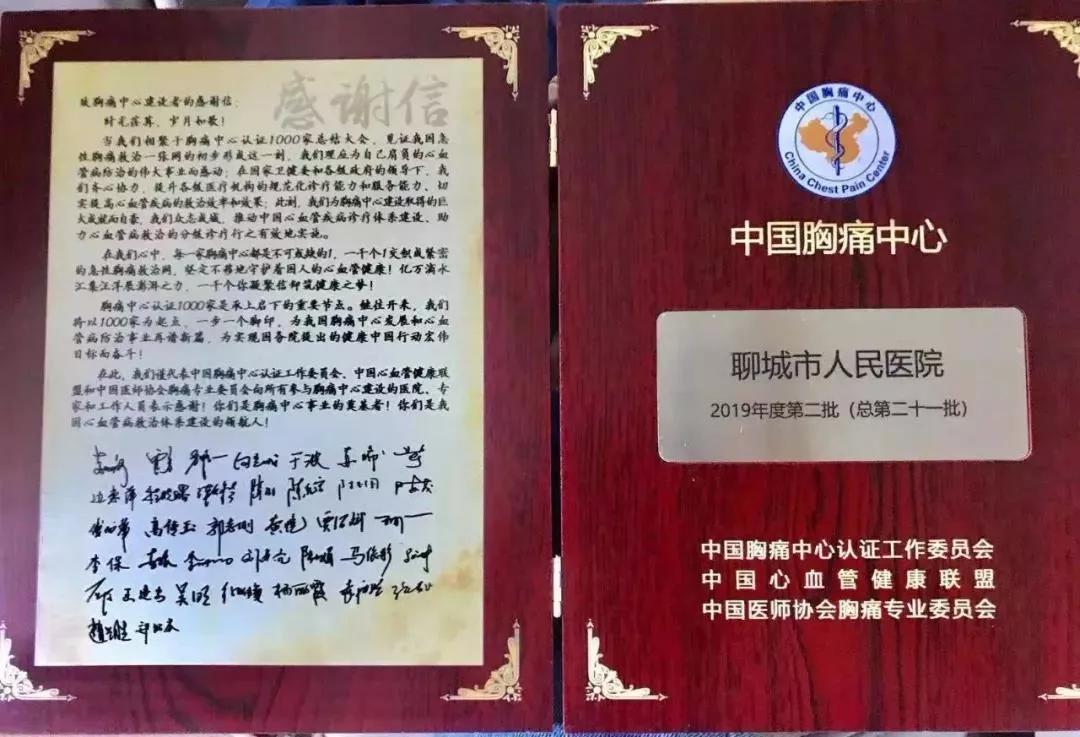 感谢信
致胸痛中心建设者的感谢信:
时光荏苒、岁月如歌!
当我们相聚于胸痛中心认证1000家总结大会、见证我国急
性胸痛救治一张网的初步形成这一刻、我们理应为自己肩负的心血
管病防治的伟大事业而感动;在国家卫健委和各级政府的领导下、我
们齐心协力、提升各级医疗机构的规范化诊疗能力和服务能力、切
实提高心血管疾病的救治效率和效果;此刻、我们为胸痛中心建设取得的巨
大成就而自豪、我们众志成城、推动中国心血管疾病诊疗体系建设、助
力心血管病救治的分级诊疗行之有效地实施。
在我们心中、每一家胸痛中心都是不可或缺的1、一千个1交织成紧密
的急性胸痛救治网、坚定不移地守护着国人的心血管健康!亿万滴水
汇集汪洋展澎湃之力、一千个你凝聚信仰筑健康之梦!
胸痛中心认证1000家是承上启下的重要节点。继往开来、我们
将以1000家为起点、一步一个脚印、为我国胸痛中心发展和心血
管病防治事业再谱新篇、为实现国务院提出的健康中国行动宏伟
目标而奋斗!
在此、我们谨代表中国胸痛中心认证工作委员会、中国心血管健康联
盟和中国医师协会胸痛专业委员会向所有参与胸痛中心建设的医院、专
家和工作人员表示感谢!你们是胸痛中心事业的奠基者!你们是我
国心血管病救治体系建设的领航人!
中国胸痛中心
China Chest Pain Center
中国胸痛中心
聊城市人民医院
2019年度第二批（总第二十一批）
中国胸痛中心认证工作委员会
中国心血管健康联盟
中国医师协会胸痛专业委员会